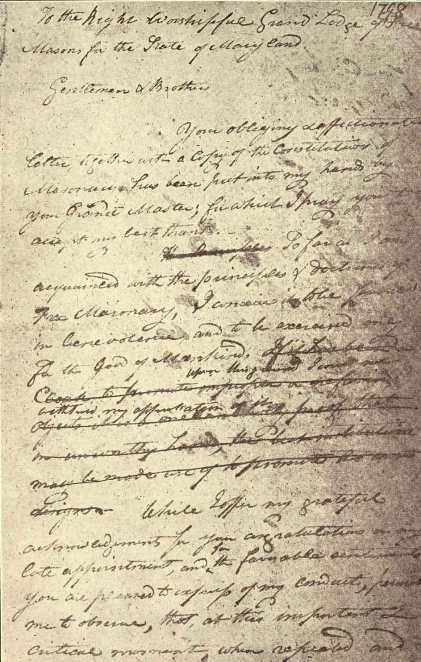 1798
To the Right Worshipful Grand Lodge of Free
Masons for the State of Maryland
Gentlemen & Brothers
Your obliging & affectionate
letter together with a Copy of the Constitutions of
Masonry has been put into my hands by
your Grand Master; for which I pray you to
accept my best thanks.
So far as I am
acquainted with the principles & doctrines of
Free Masonry, I conceive it to be founded
in benevolence and to be exercised only
for the good of Mankind.
upon this ground
Cloak to promote improper or
withdraw my approbation of it
in unworthy hands, the best institutions
may be made use of to promote the worst
designs
While I offer my grateful
acknowledgements for your congratulations on my
late appointment and for the favorable sentiments
you are pleased to express of my conduct, permit
me to observe, that at this important &
critical moment, when repeated and